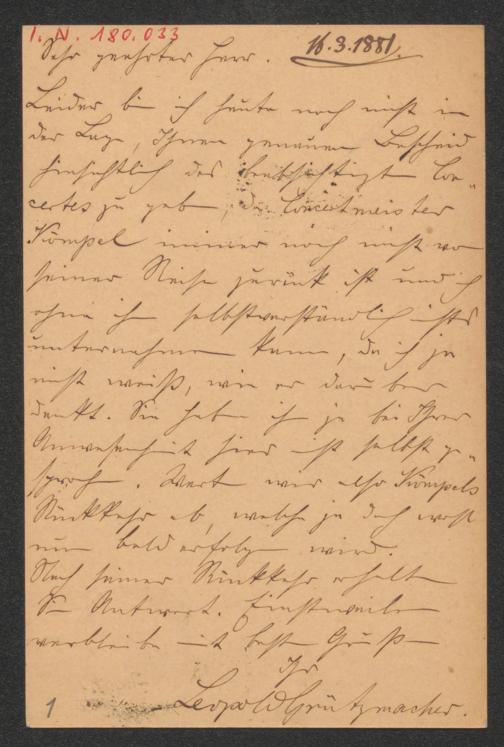 I. N. 180.033
16.3.1881.
Sehr geehrter Herr.
Leider bin ich heute noch nicht in
der Lage, Ihnen genauen Bescheid
hinsichtlich des beabsichtigten Con-
certes zu geben, da Concertmeister
Kömpel immer noch nicht von
seiner Reise zurück ist und ich
ohne ihn selbstverständlich nichts
unternehmen kann, da ich ja
nicht weiß, wie er darüber
denkt. Sie haben ihn ja bei Ihrer
Anwesenheit hier nicht selbst ge-
sprochen. Warten wir also Kömpels
Rückkehr ab, welche ja doch wohl
nun bald erfolgen wird.
Nach seiner Rückkehr erhalten
Sie Antwort. Einstweilen
verbleibe mit besten Grüßen
Ihr
Leopold Grützmacher.
1